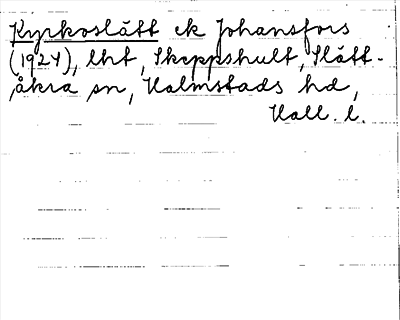 Kyrkoslätt ek Johansfors
(1924), lht, Skeppshult, Slätt-
åkra sn, Halmstads hd,
Hall. l.